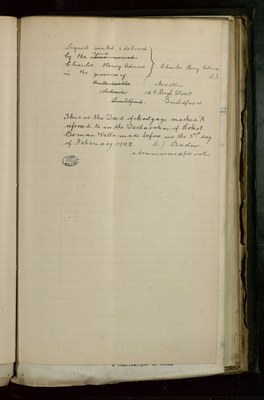 Signed sealed & delivered
by the said
Charles Henry Adams } Charles Henry Adams
in the presence of L.S.
Solicitor 148 High Street
Guildford. Guildford
This is the Deed of Mortgage marked A
referred to in the Declaration of Robert
Wells made before me the 3rd day
of February 1902
a Commissioner for oaths